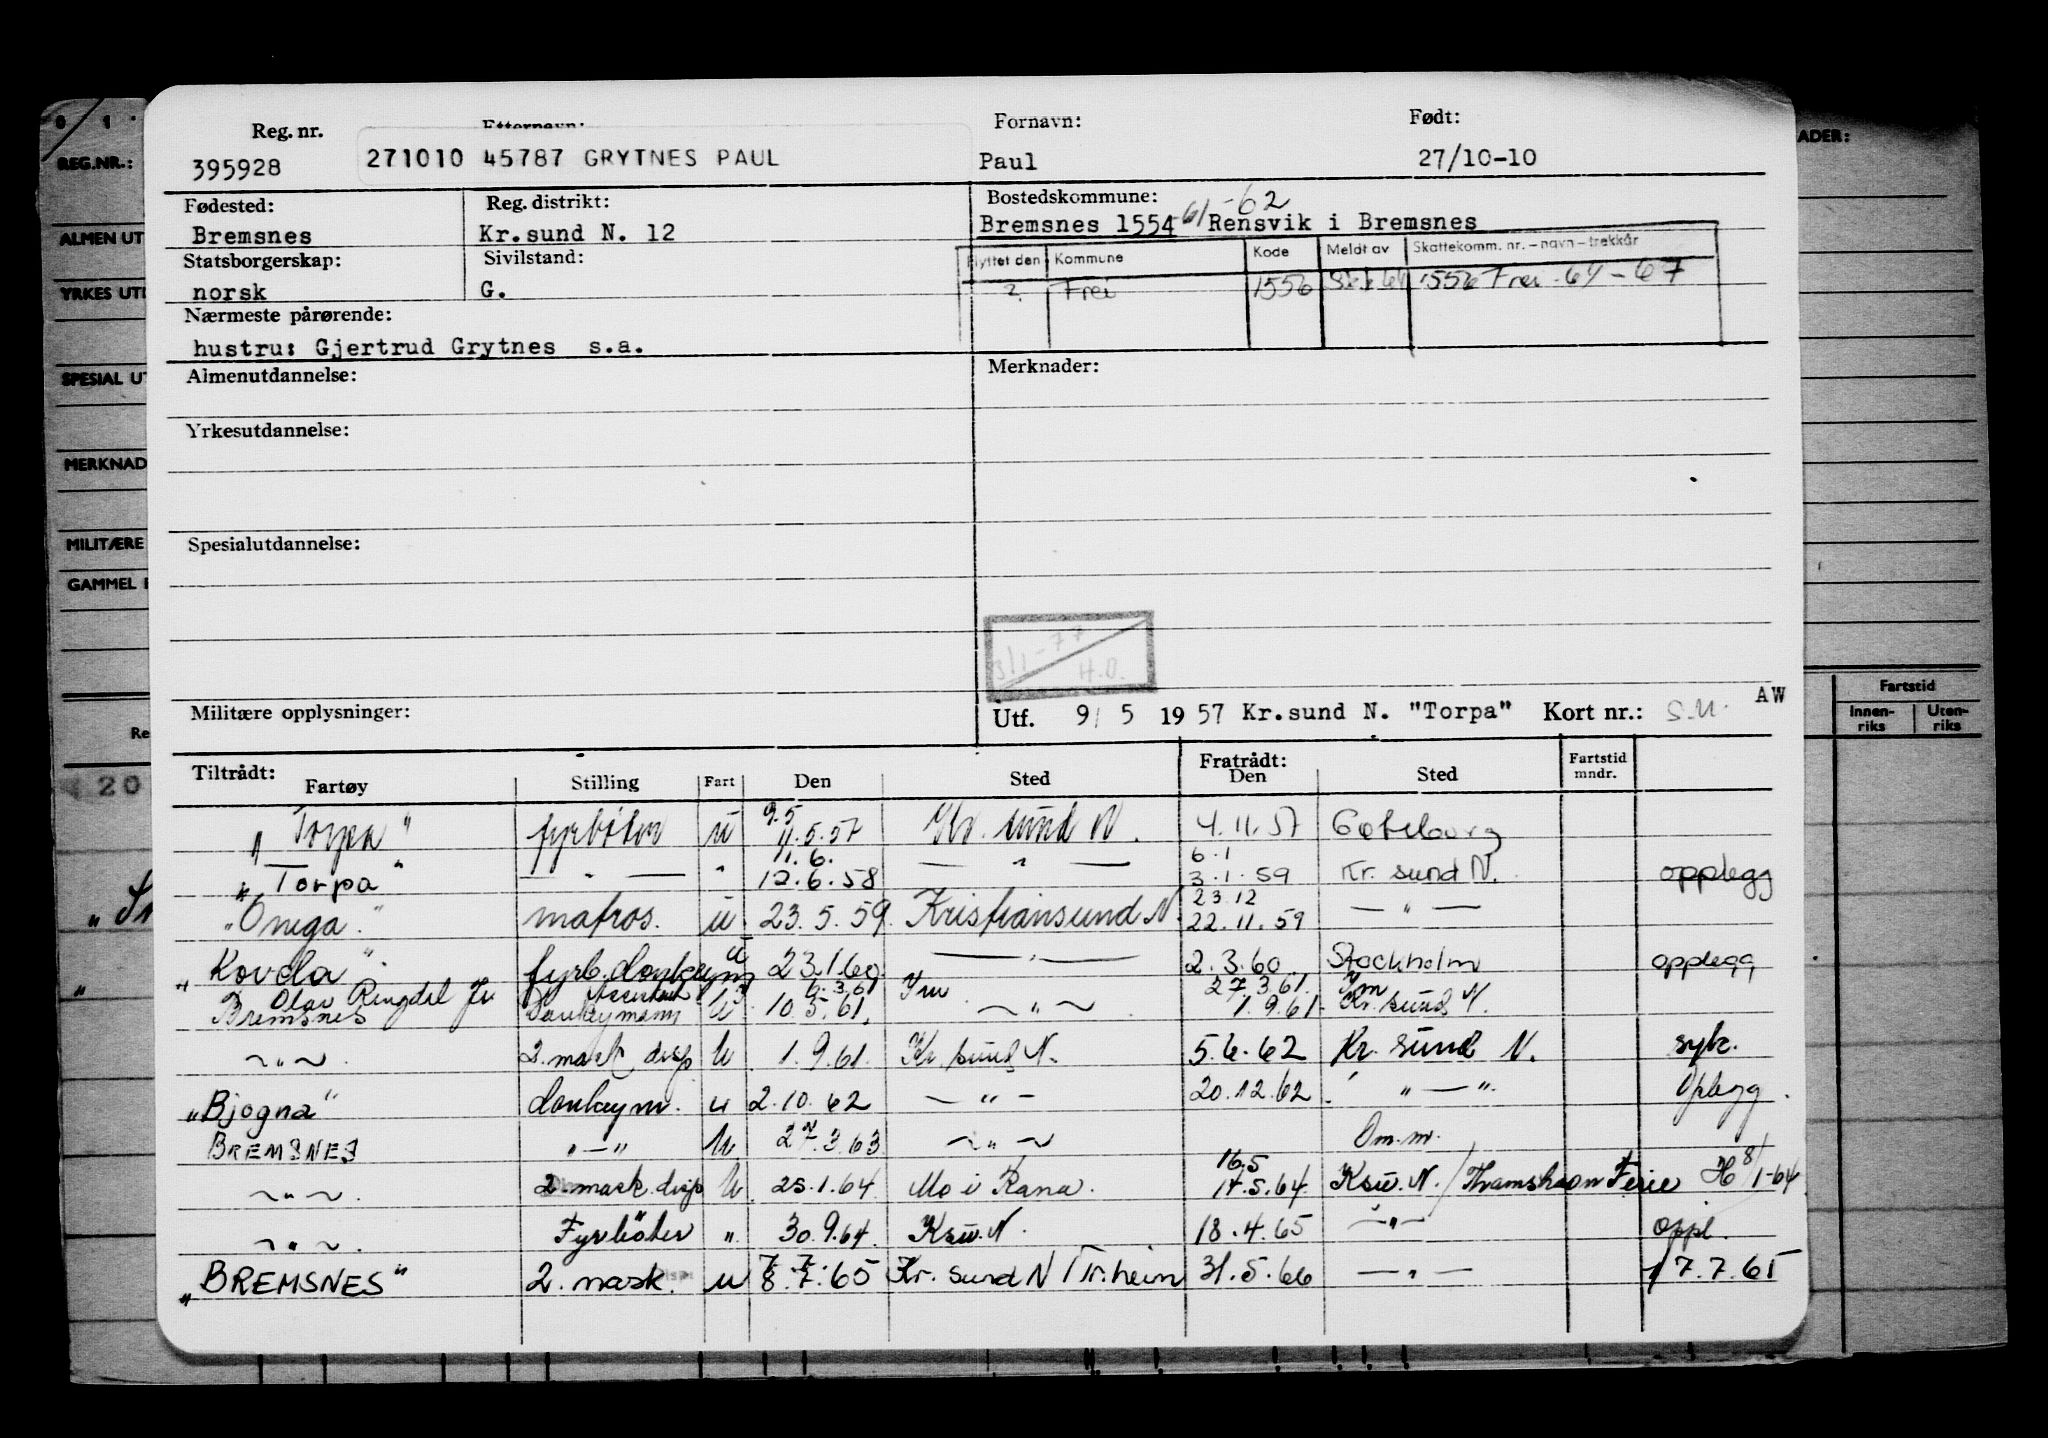 Reg. nr. Etternavn: Fornavn: Født:
395928 271010 45787 GRYTNES PAUL Paul 27/10-10
Fødested: Reg. distrikt: Bostedskommune:
Bremsnes Kr.sund N. 12 Bremsnes 1554 -61-62 Rensvik i Bremsnes
Statsborgerskap: Sivilstand:
norsk G.
Flyttet den Kommune Kode Meldt av Skattekomm. nr. – navn – trekkår
? Frei 1556 1556 Frei - 64 - 67
Nærmeste pårørende:
hustru: Gjertrud Grytnes s.a.
Almenutdannelse: Merknader:
Yrkesutdannelse:
Spesialutdannelse:
3/1-77
H.O.
Militære opplysninger:
Utf. 9/ 5 1957 Kr.sund N. "Torpa" Kort nr.: S.U. AW
Tiltrådt: Fratrådt:
Fartøy Stilling Fart Den Sted Den Sted Fartstid mndr.
9.5
"Torpa" fyrbøter u 11.5.57 Kr. sund N. 4.11.57 Gøteborg
11.6. 6.1
"Torpa" — " — " 12.6.58 — " — 3.1.59 Kr. sund N. opplegg
23.12
"Omega" matros. u 23.5.59 Kristiansund N 22.11.59 — " —
"Kovda" fyrb. donkeym u 23.1.60 — " — 2.3.60 Stockholm opplegg
Olav Ringdal Jr Assistent 6.3.61 Ym 27.3.61. Ym
Bremsnes Donkeymann U 10.5.61. ~ " ~ 1.9.61 Kr. sund N.
~ " ~ 2. mask disp U 1.9.61. Kr. sund N. 5.6.62 Kr. sund N. syk.
"Bjogna" donkeym. u 2.10.62 — " — 20.12.62 " — " Oplegg.
BREMSNES " — " U 27.3.63 ~ " ~ Om.m.
16.5
~ " ~ 2. mask. disp U 25.1.64 Mo i Rana. 14.5.64 Ksu. N. / Thamshavn Ferie H 8/1-64
~ " ~ Fyrbøter " 30.9.64. Ksu. N. 18.4.65 — " — oppl.
7. 7.
"BREMSNES" 2. mask. Disp u 8.7.65 Kr. sund N / Tr.heim 31.5.66 — " — 17.7.65
REG.NR.:
ALMEN UT
YRKES UTD
SPESIAL UT
MERKNAD
MILITÆRE
GAMMEL
Re
20
ADER:
Fartstid
Innen-riks Uten-riks